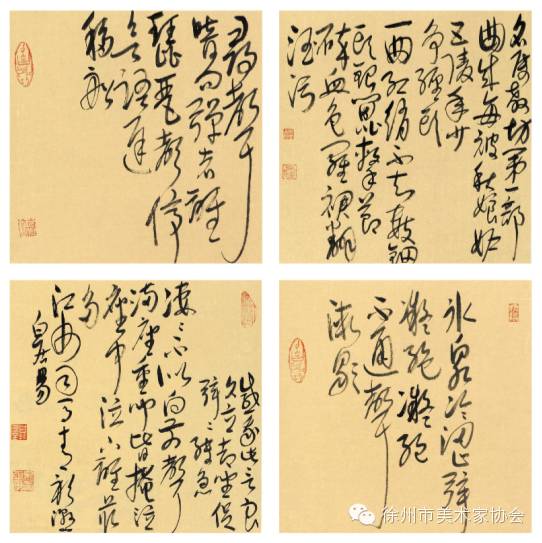 尋聲
暗問彈者誰
琵琶聲停
欲語遲
移船
名屬教坊第一部
曲成每被秋娘妒
五陵年少
争纏頭
一曲紅綃不知數鈿
頭銀篦擊節
碎血色羅裙翻
酒污
感我此言良
久立却坐促
弦弦轉急
凄凄不似向前聲
滿座重聞皆掩泣
座中泣下誰最
多
江州司馬青衫濕
白居易
冰泉冷澀弦
凝絕凝絕
不通聲
漸歇
徐州市美术家协会